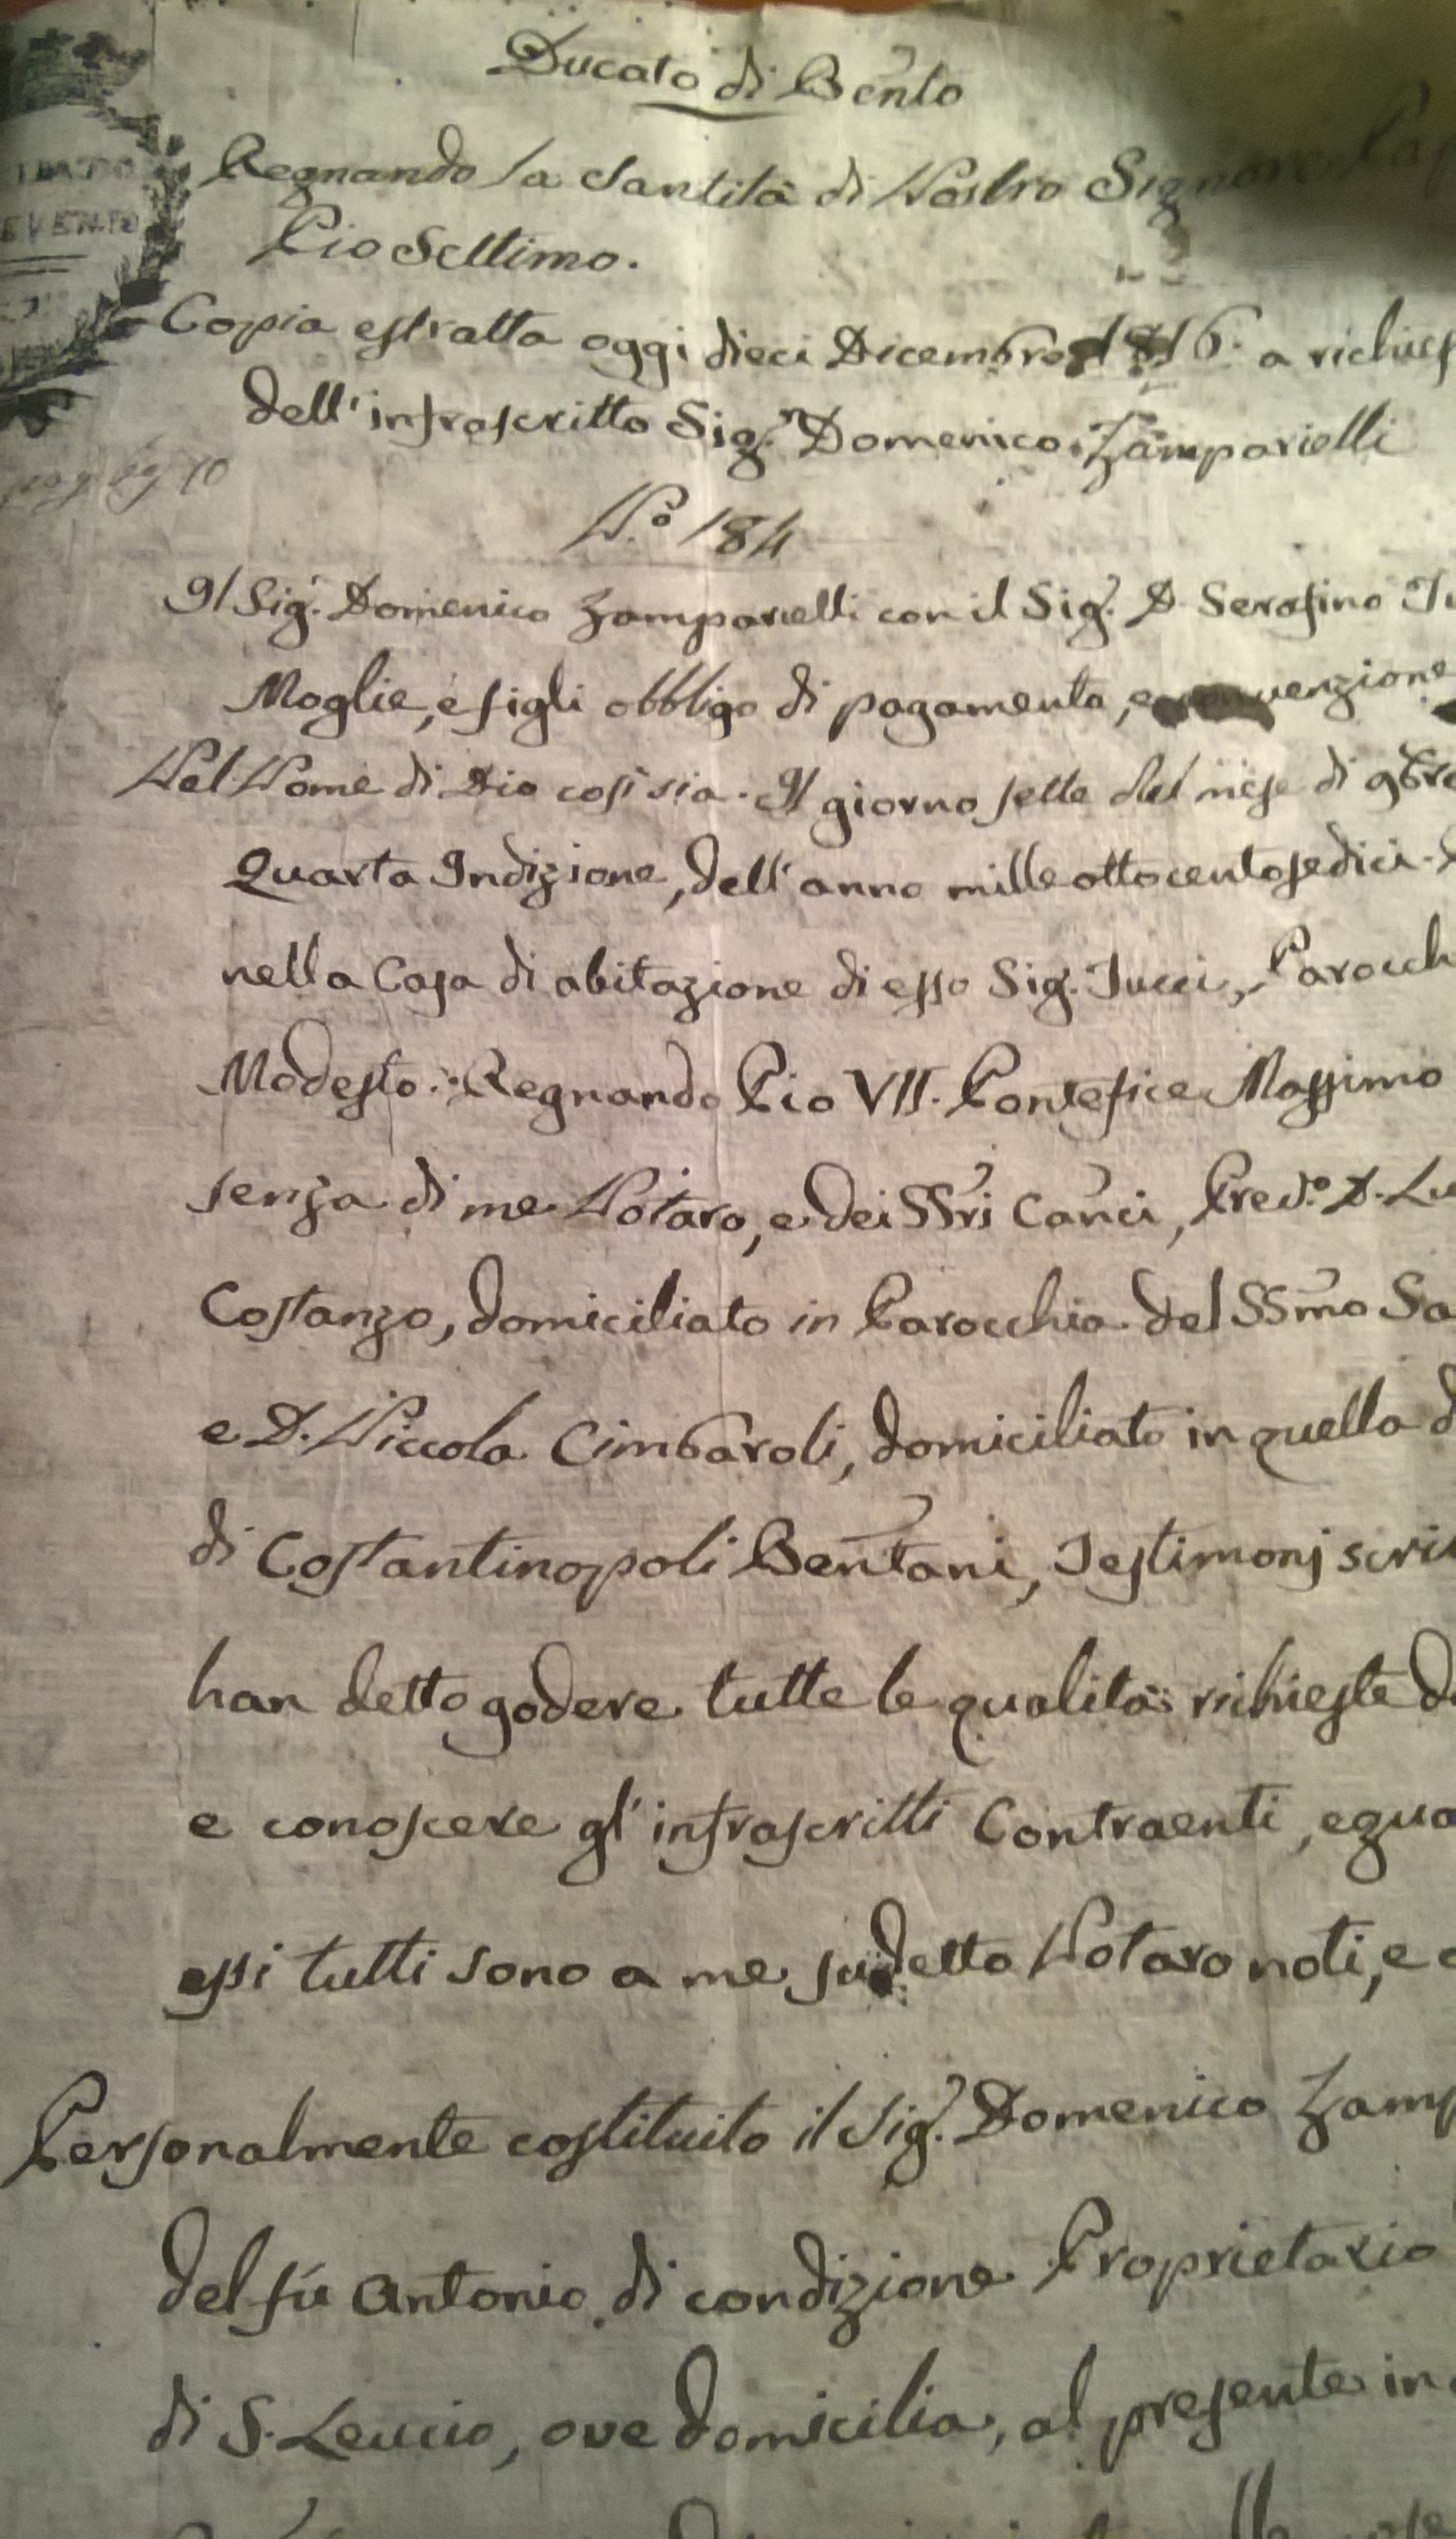 Ducato di Bento
Regnando la Santità di Nostro Signore Pap
Pio Settimo.
Copia estratta oggi dieci Dicembre 1816. a richies
dell'infrascritto Sig.r Domenico Zamparielli
EVENTO
N.o 184
Il Sig.r Domenico Zamparielli con il Sig.r D. Serafino Iu
Moglie, e figli obbligo di pagamento, e convenzione
Nel Nome di Dio così sia. Il giorno sette del mese di 9bre
Quarta Indizione, dell'anno mille ottocentosedici.
nella Casa di abitazione di esso Sig. Iucci, Parocch
Modesto. Regnando Pio VII. Pontefice Massimo
senza di me Notaro, e dei SSri Canci, Pred.o D. Lu
Costanzo, domiciliato in Parocchia del SSmo Sa
e D. Niccola Cimbaroli, domiciliato in quella d
di Costantinopoli Bentani, Testimonj scri
han detto godere tutte le qualità richieste d
e conoscere gl'infrascritti Contraenti, egua
essi tutti sono a me sudetto Notaro noti, e c
Personalmente costituito il Sig.r Domenico Zamp
del fù Antonio di condizione Proprietario
di S. Leucio, ove domicilia, al presente in